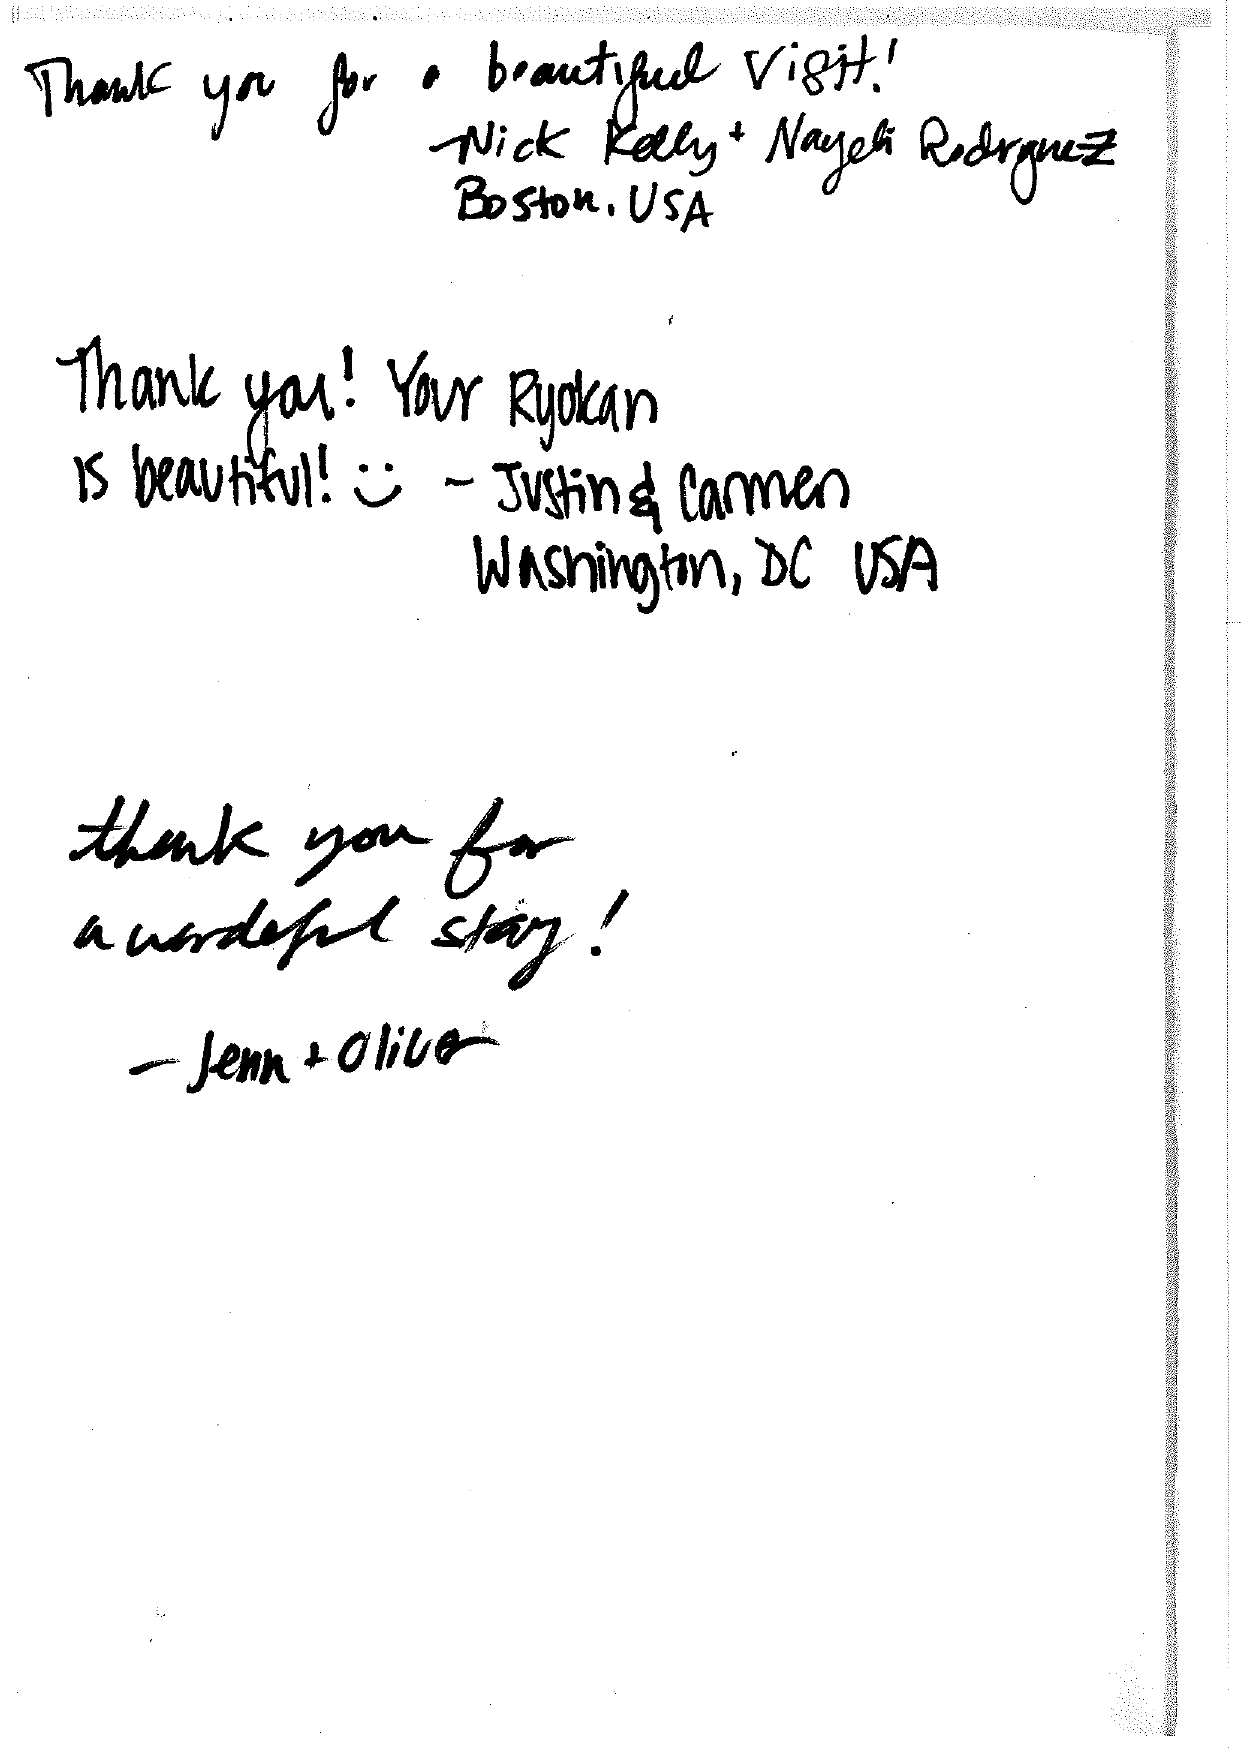 Thank you for a beautiful visit!
- Nick Kelly + Nayeli Rodriguez
Boston, USA
Thank you! Your Ryokan
is beautiful! :) ~ Justin & Carmen
Washington, DC USA
thank you for
a wonderful stay!
- Jenn + Oliver